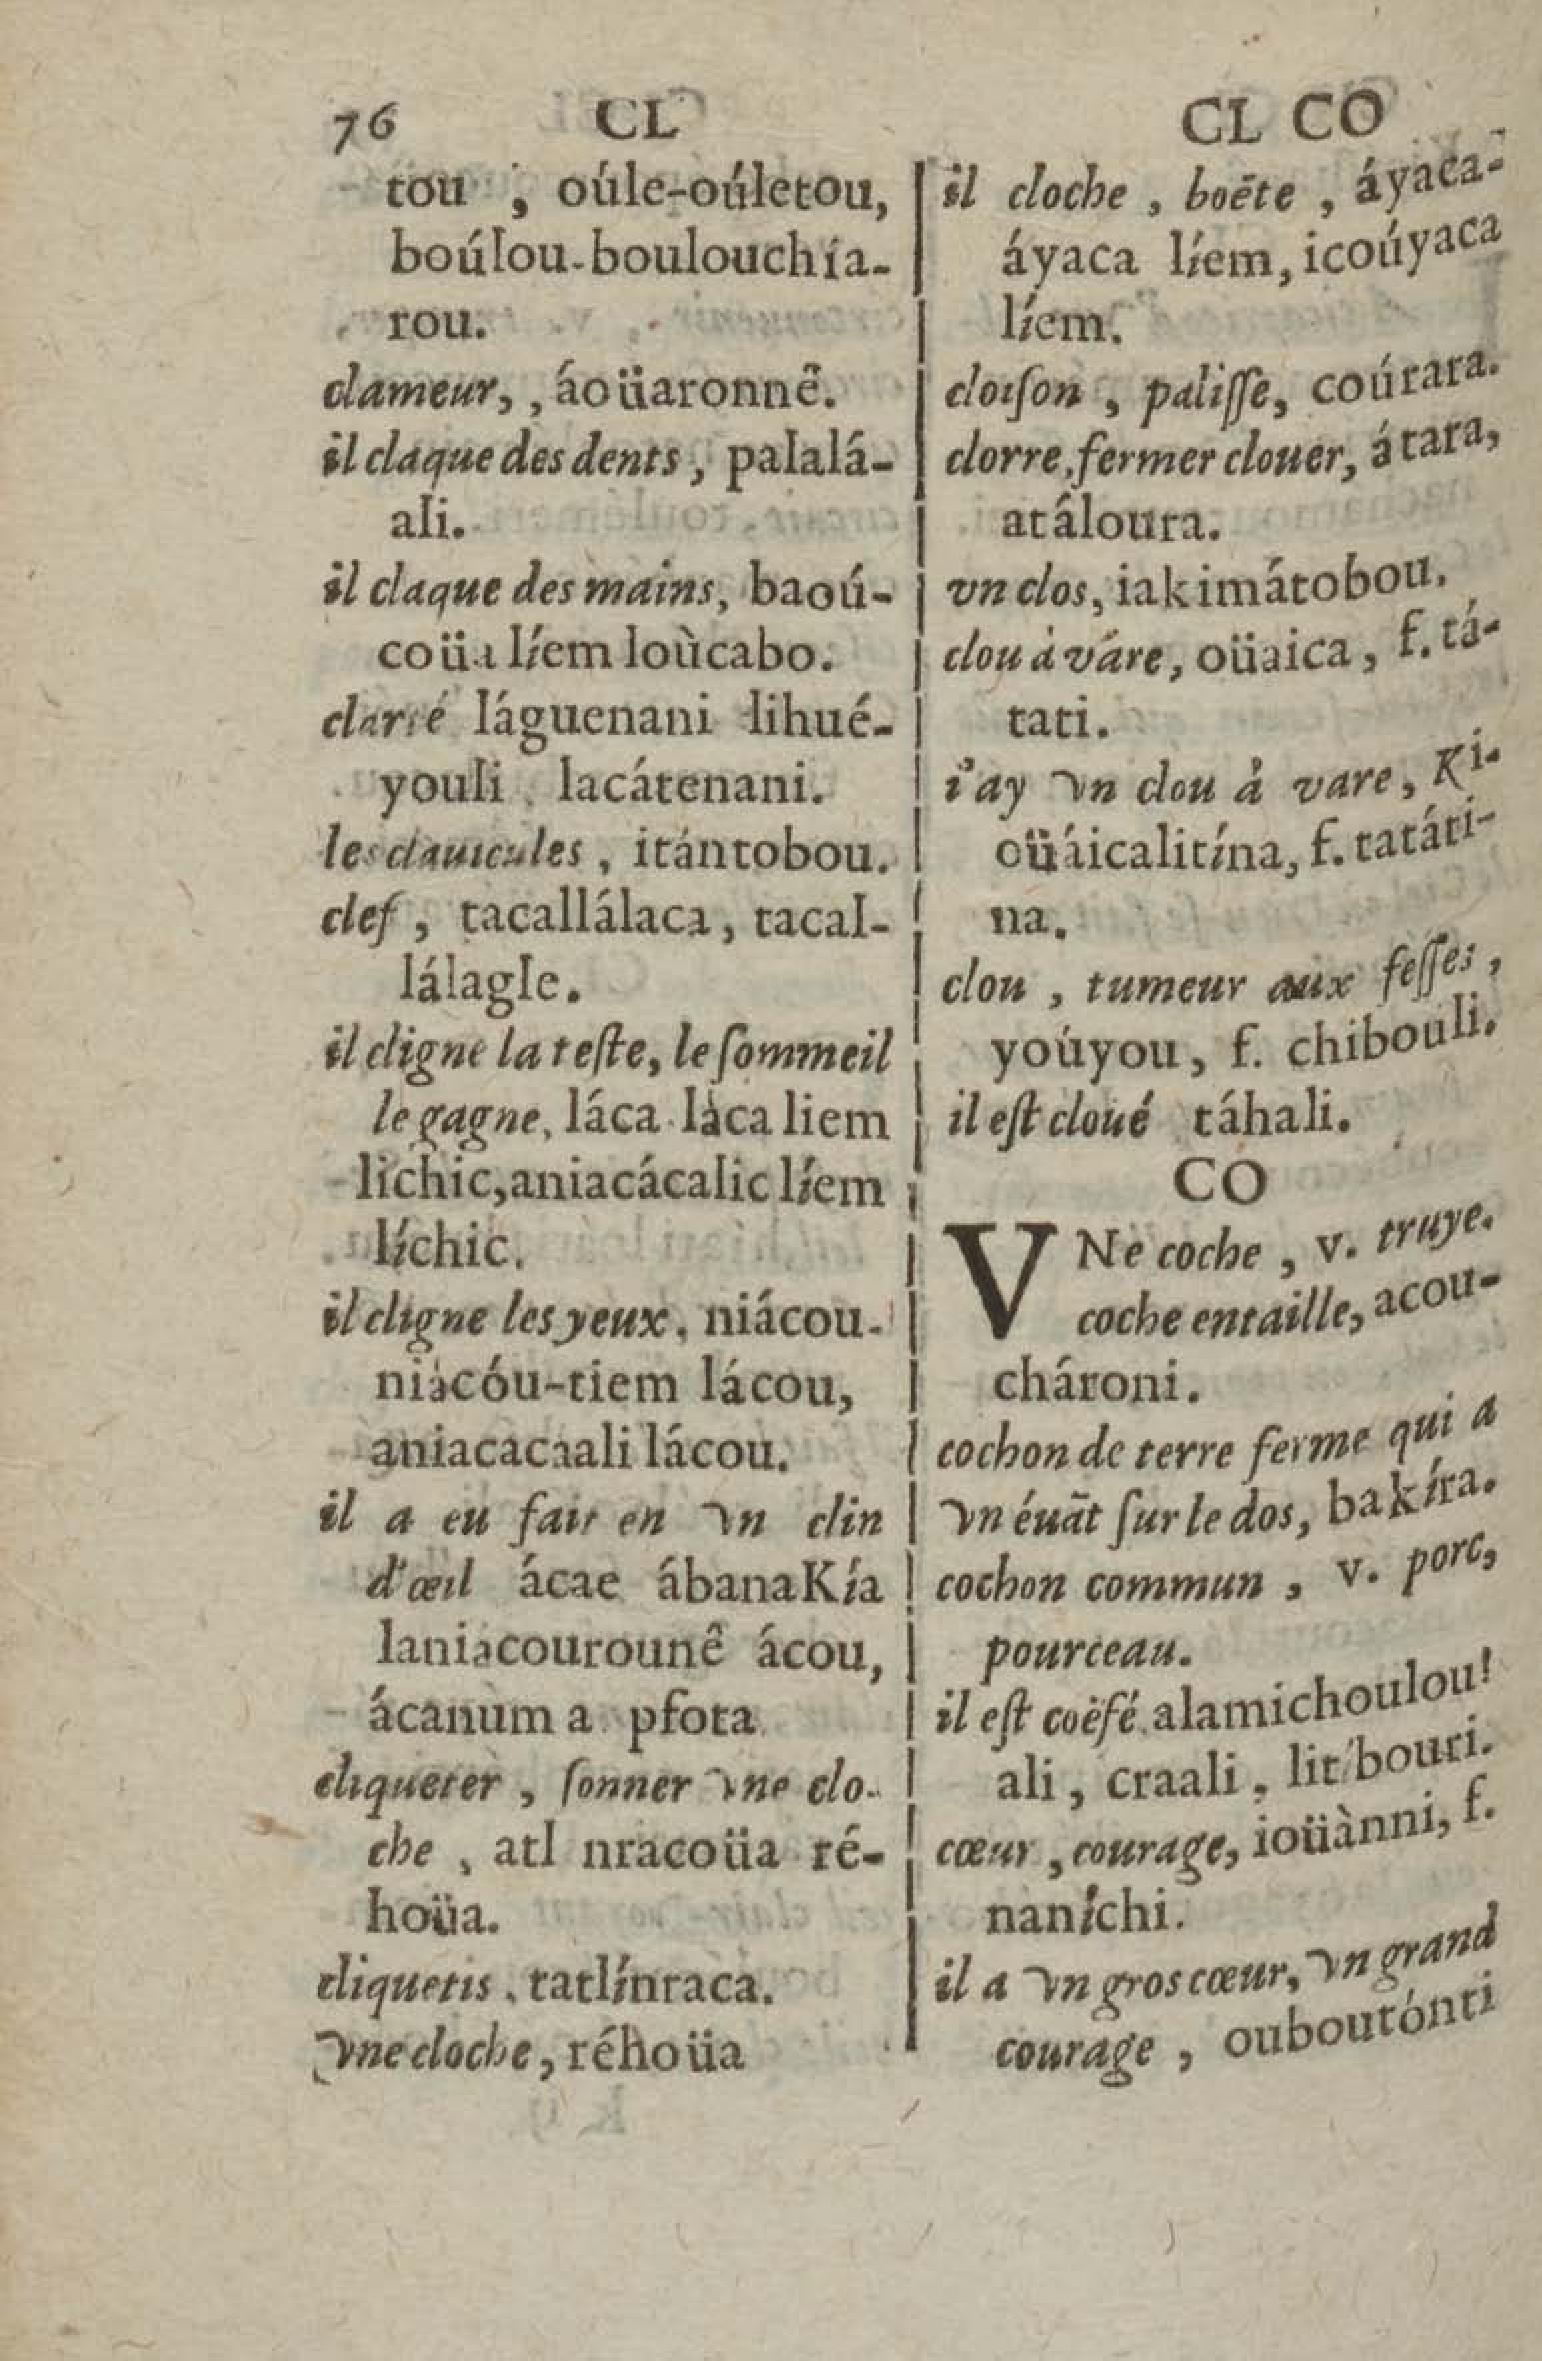 76 CL
tou , oúle-oúletou,
boúlou-boulouchía-
rou.
clameur, , áoüaronnê.
il claque des dents, palalá-
ali.
il claque des mains, baoú-
coüa líem loùcabo.
clarté láguenani lihué-
youli lacátenani.
les clauicules, itántobou.
clef, tacallálaca, tacal-
lálagle.
il cligne la teſte, le ſommeil
le gagne, láca láca liem
lichic, aniacácalic líem
líchic.
il cligne les yeux, niácou-
niàcóu-tiem lácou,
aniacacaali lácou.
il a eu fait en vn clin
d'œil ácae ábanaKía
laniàcourounê ácou,
ácanum a pfota
cliqueter, ſonner vne clo-
che, atl nracoüa ré-
hoüa.
cliquetis, tatlínraca.
vne cloche, réhoüa
CL CO
il cloche, boēte, áyaca-
áyaca líem, icoúyaca
líem.
cloiſon, paliſſe, coúrara.
clorre, fermer clouer, átara,
atáloura.
vn clos, iakimátobou,
clou à váre, oüaica, f. tá-
tati.
i'ay vn clou à vare, Ki-
oüáicalitína, f. tatáti-
na.
clou, tumeur aux feſſes,
yoúyou, f. chibouli.
il eſt cloüé táhali.
CO
VNe coche, v. truye.
coche entaille, acou-
chároni.
cochon de terre ferme qui a
vn éuāt ſur le dos, bakíra.
cochon commun, v. porc,
pourceau.
il eſt coëfé, alamichoulou!
ali, craali, litíbouri.
cœur, courage, ioüànni, f.
naníchi.
il a vn gros cœur, vn grand
courage, ouboutónti